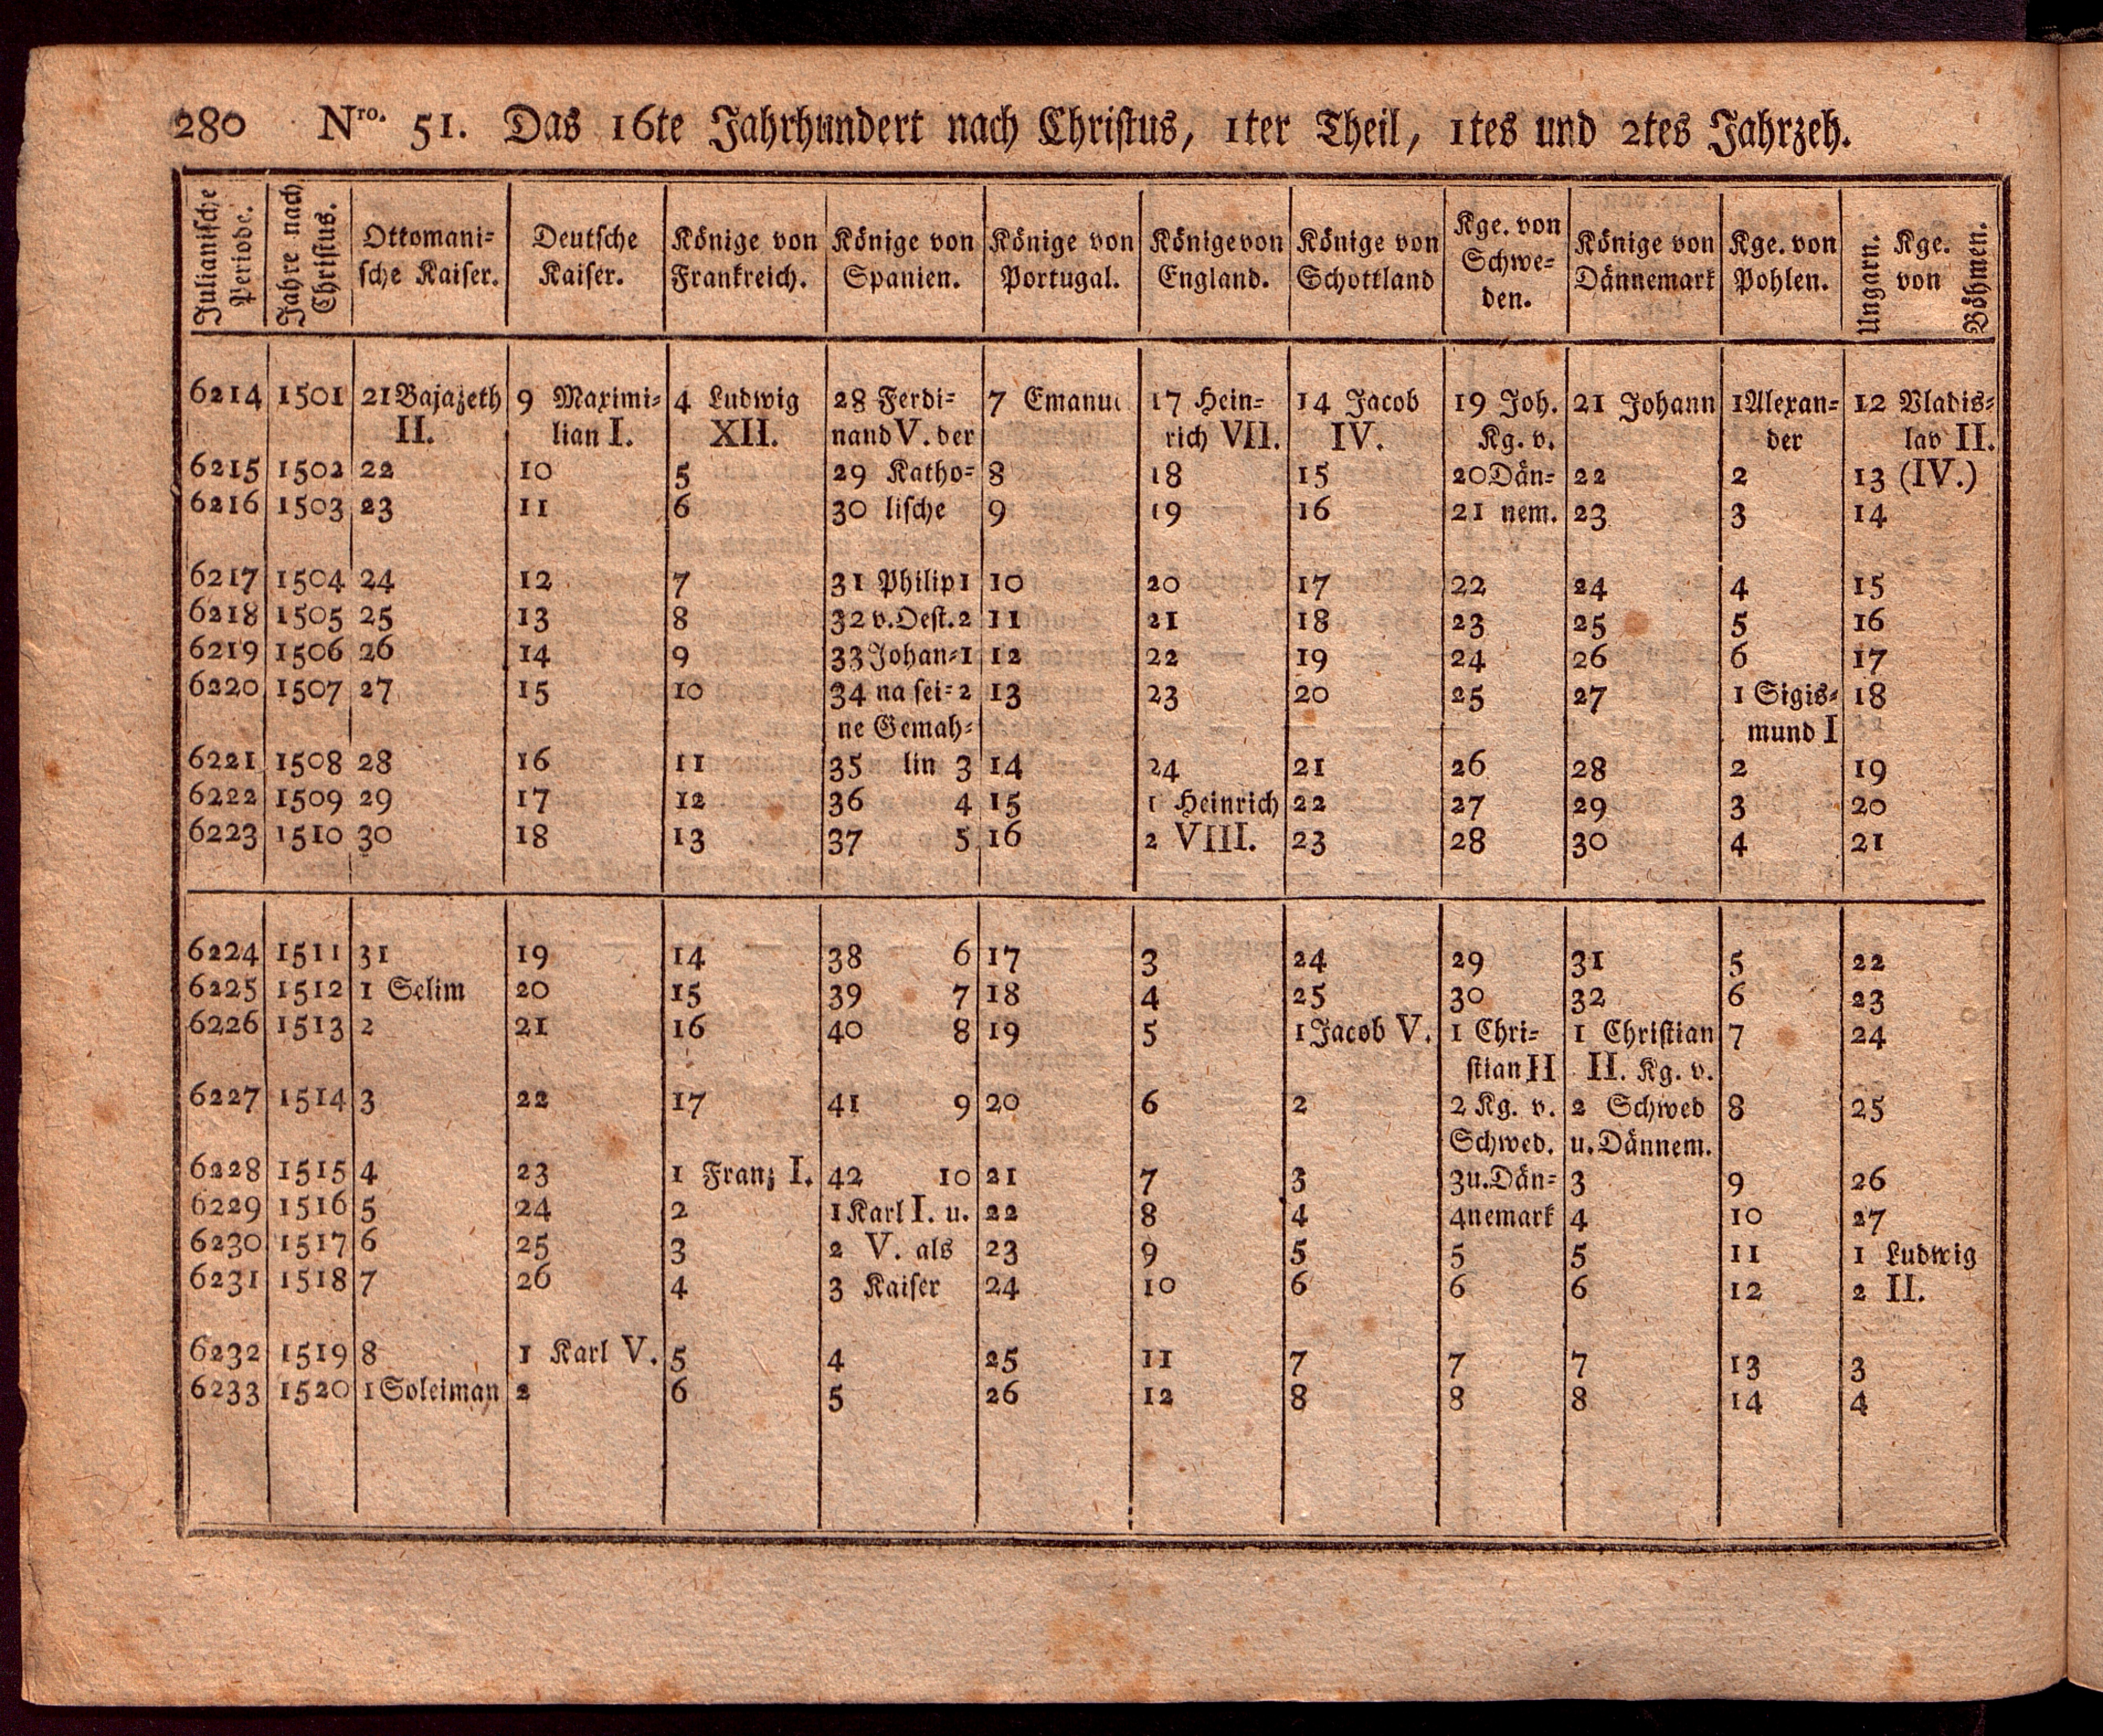 280 Nro. 51. Das 16te Jahrhundert nach Christus, 1ter Theil, 1tes und 2tes Jahrzeh.
Julianische Periode. | Jahre nach Christus. | Ottomani= sche Kaiser. | Deutsche Kaiser. | Könige von Frankreich. | Könige von Spanien. | Könige von Portugal. | Könige von England. | Könige von Schottland | Kge. von Schwe= den. | Könige von Dännemark | Kge. von Pohlen. | Ungarn. Kge. von Böhmen.
6214 1501 21 Bajazeth 9 Maximi= 4 Ludwig 28 Ferdi= 7 Emanu 17 Hein= 14 Jacob 19 Joh. 21 Johann 1 Alexan= 12 Vladis=
II. lian I. XII. nand V. der rich VII. IV. Kg. v. der lav II.
6215 1502 22 10 5 29 Katho= 8 18 15 20 Dän= 22 2 13 (IV.)
6216 1503 23 11 6 30 lische 9 19 16 21 nem. 23 3 14
6217 1504 24 12 7 31 Philip 1 10 20 17 22 24 4 15
6218 1505 25 13 8 32 v. Oest. 2 11 21 18 23 25 5 16
6219 1506 26 14 9 33 Johan= 1 12 22 19 24 26 6 17
6220 1507 27 15 10 34 na sei= 2 13 23 20 25 27 1 Sigis= 18
ne Gemah= mund I
6221 1508 28 16 11 35 lin 3 14 24 21 26 28 2 19
6222 1509 29 17 12 36 4 15 1 Heinrich 22 27 29 3 20
6223 1510 30 18 13 37 5 16 2 VIII. 23 28 30 4 21
6224 1511 31 19 14 38 6 17 3 24 29 31 5 22
6225 1512 1 Selim 20 15 39 7 18 4 25 30 32 6 23
6226 1513 2 21 16 40 8 19 5 1 Jacob V. 1 Chri= 1 Christian 7 24
stian II II. Kg. v.
6227 1514 3 22 17 41 9 20 6 2 2 Kg. v. 2 Schwed 8 25
Schwed. u. Dännem.
6228 1515 4 23 1 Franz I. 42 10 21 7 3 3 u. Dän= 3 9 26
6229 1516 5 24 2 1 Karl I. u. 22 8 4 4 nemark 4 10 27
6230 1517 6 25 3 2 V. als 23 9 5 5 5 11 1 Ludwig
6231 1518 7 26 4 3 Kaiser 24 10 6 6 6 12 2 II.
6232 1519 8 1 Karl V. 5 4 25 11 7 7 7 13 3
6233 1520 1 Soleiman 2 6 5 26 12 8 8 8 14 4